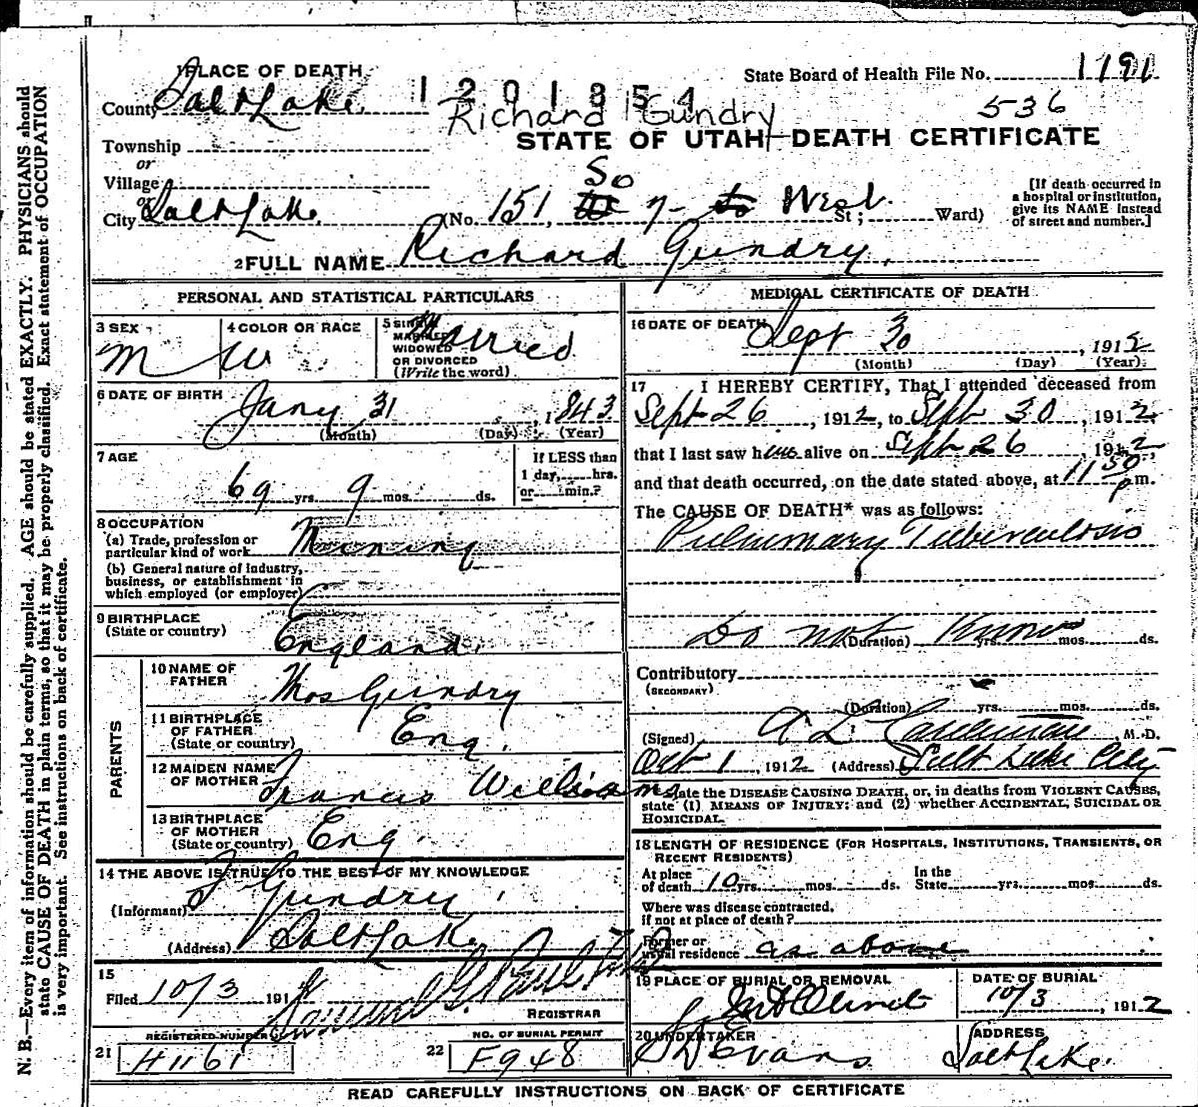 1 PLACE OF DEATH
State Board of Health File No. 1191
County Salt Lake
1201854
Richard Gundry
536
STATE OF UTAH—DEATH CERTIFICATE
Township
or
Village
or
City Salt Lake
(No. 151, So 7- West St; Ward)
[If death occurred in
a hospital or institution,
give its NAME instead
of street and number.]
2 FULL NAME Richard Gundry.
PERSONAL AND STATISTICAL PARTICULARS
3 SEX
M
4 COLOR OR RACE
W
5 SINGLE
MARRIED
WIDOWED
OR DIVORCED
(Write the word)
Married
6 DATE OF BIRTH
Jany 31, 1843
(Month) (Day) (Year)
7 AGE
69 yrs. 9 mos. ds.
If LESS than
1 day, hrs.
or min.?
8 OCCUPATION
(a) Trade, profession or
particular kind of work Mining
(b) General nature of industry,
business, or establishment in
which employed (or employer)
9 BIRTHPLACE
(State or country)
England.
10 NAME OF
FATHER
Thos Gundry
11 BIRTHPLACE
OF FATHER
(State or country)
Eng.
12 MAIDEN NAME
OF MOTHER
Francis Williams
13 BIRTHPLACE
OF MOTHER
(State or country)
Eng.
PARENTS
14 THE ABOVE IS TRUE TO THE BEST OF MY KNOWLEDGE
(Informant) Gundry
(Address) Salt Lake
15
Filed 10/3 191
REGISTRAR
REGISTERED NUMBER
21 H1161
NO. OF BURIAL PERMIT
22 F948
MEDICAL CERTIFICATE OF DEATH
16 DATE OF DEATH
Sept 30, 1912
(Month) (Day) (Year)
17 I HEREBY CERTIFY, That I attended deceased from
Sept 26, 1912, to Sept 30, 1912,
that I last saw him alive on Sept 26, 1912,
and that death occurred, on the date stated above, at 11 50 p m.
The CAUSE OF DEATH* was as follows:
Pulmonary Tuberculosis
Do not Know
(Duration) yrs. mos. ds.
Contributory
(SECONDARY)
(Duration) yrs. mos. ds.
(Signed) A L M.D.
Oct 1, 1912 (Address) Salt Lake City
State the DISEASE CAUSING DEATH, or, in deaths from VIOLENT CAUSES,
state (1) MEANS OF INJURY; and (2) whether ACCIDENTAL, SUICIDAL OR
HOMICIDAL.
18 LENGTH OF RESIDENCE (FOR HOSPITALS, INSTITUTIONS, TRANSIENTS, OR
RECENT RESIDENTS)
At place
of death 10 yrs. mos. ds.
In the
State yrs. mos. ds.
Where was disease contracted,
if not at place of death?
Former or
usual residence as above
19 PLACE OF BURIAL OR REMOVAL
Mt Olivet
DATE OF BURIAL
10/3, 1912
20 UNDERTAKER
S D Evans
ADDRESS
Salt Lake.
READ CAREFULLY INSTRUCTIONS ON BACK OF CERTIFICATE
N. B.—Every item of information should be carefully supplied. AGE should be stated EXACTLY. PHYSICIANS should
state CAUSE OF DEATH in plain terms, so that it may be properly classified. Exact statement of OCCUPATION
is very important. See instructions on back of certificate.